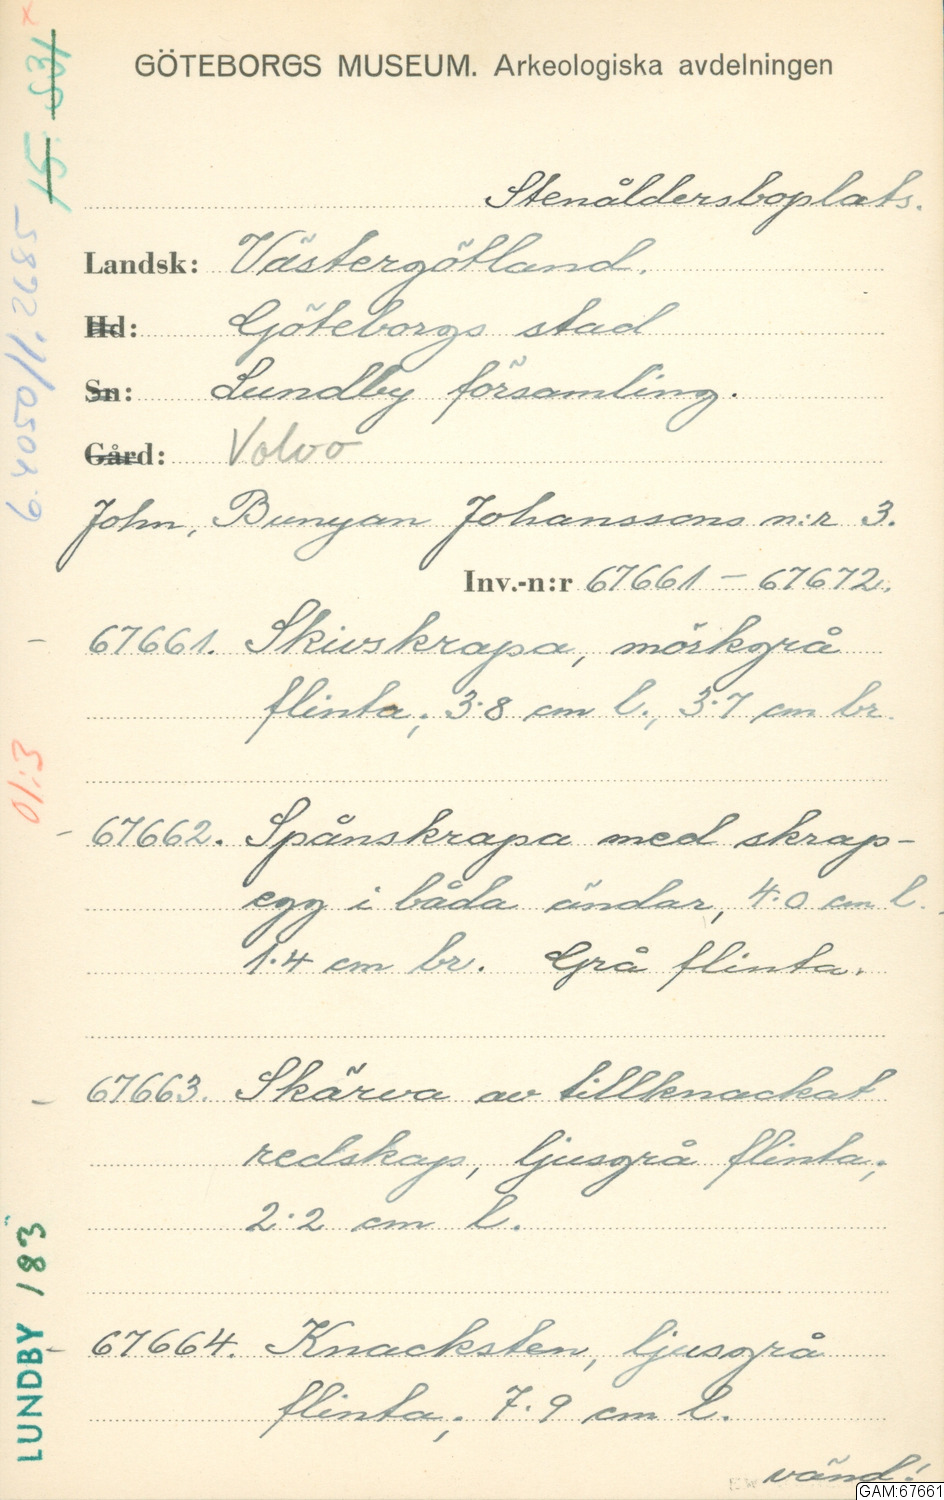 GÖTEBORGS MUSEUM. Arkeologiska avdelningen
Stenåldersboplats.
Landsk: Västergötland.
Hd: Göteborgs stad
Sn: Lundby församling.
Gård: Volvo
John, Bunyan Johanssons n:r 3.
Inv.-n:r 67661 – 67672.
67661. Skivskrapa, mörkgrå
flinta; 3·8 cm l., 3·7 cm br.
67662. Spånskrapa med skrap-
egg i båda ändar, 4·0 cm l.
1·4 cm br. Grå flinta.
67663. Skärva av tillknackat
redskap, ljusgrå flinta;
2·2 cm l.
67664. Knacksten, ljusgrå
flinta; 7·9 cm l.
vänd!
EW
GAM:67661
LUNDBY 183
01:3